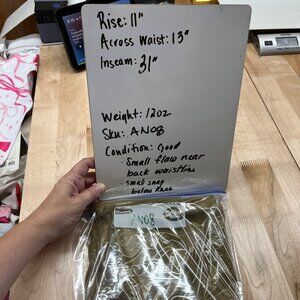 Rise: 11"
Across Waist: 13"
Inseam: 31"
Weight: 12oz
Sku: AN08
Condition: Good
· Small flaw near
back waistline
· small snag
below knee
AN08